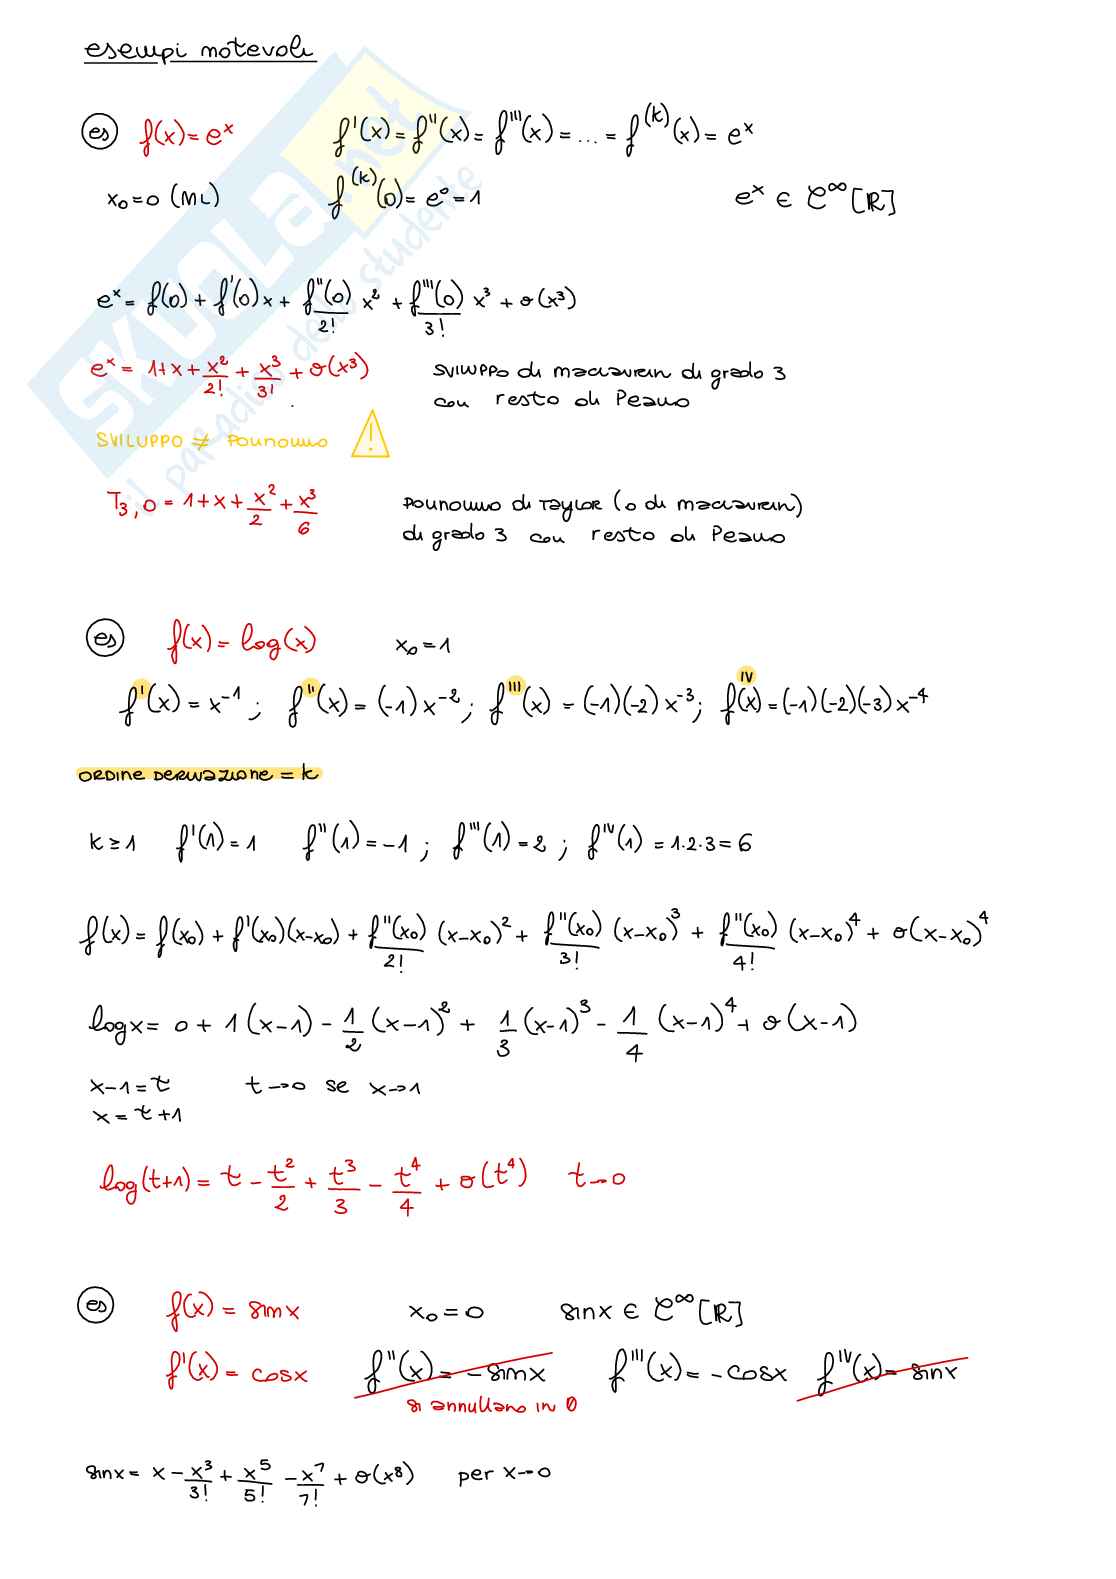 esempi notevoli
es f(x) = e^x f'(x) = f''(x) = f'''(x) = ... = f^(k)(x) = e^x
x₀ = 0 (ML) f^(k)(0) = e⁰ = 1 e^x ∈ C^∞ [ℝ]
e^x = f(0) + f'(0) x + f''(0)/2! x² + f'''(0)/3! x³ + o(x³)
e^x = 1 + x + x²/2! + x³/3! + o(x³) sviluppo di maclaurin di grado 3
con resto di Peano
SVILUPPO ≠ POLINOMIO !
T₃,₀ = 1 + x + x²/2 + x³/6 POLINOMIO di TAYLOR (o di maclaurin)
di grado 3 con resto di Peano
es f(x) = log(x) x₀ = 1
f'(x) = x⁻¹ ; f''(x) = (-1) x⁻² ; f'''(x) = (-1)(-2) x⁻³ ; f^IV(x) = (-1)(-2)(-3) x⁻⁴
ORDINE DERIVAZIONE = k
k ≥ 1 f'(1) = 1 f''(1) = -1 ; f'''(1) = 2 ; f^IV(1) = 1·2·3 = 6
f(x) = f(x₀) + f'(x₀)(x-x₀) + f''(x₀)/2! (x-x₀)² + f''(x₀)/3! (x-x₀)³ + f''(x₀)/4! (x-x₀)⁴ + o(x-x₀)⁴
log x = 0 + 1 (x-1) - 1/2 (x-1)² + 1/3 (x-1)³ - 1/4 (x-1)⁴ + o(x-1)
x-1 = t t→0 se x→1
x = t+1
log(t+1) = t - t²/2 + t³/3 - t⁴/4 + o(t⁴) t→0
es f(x) = sin x x₀ = 0 sin x ∈ C^∞ [ℝ]
f'(x) = cos x f''(x) = - sin x f'''(x) = - cos x f^IV(x) = sin x
si annullano in 0
sin x = x - x³/3! + x⁵/5! - x⁷/7! + o(x⁸) per x→0
SKUOLA.net
il paradiso dello studente